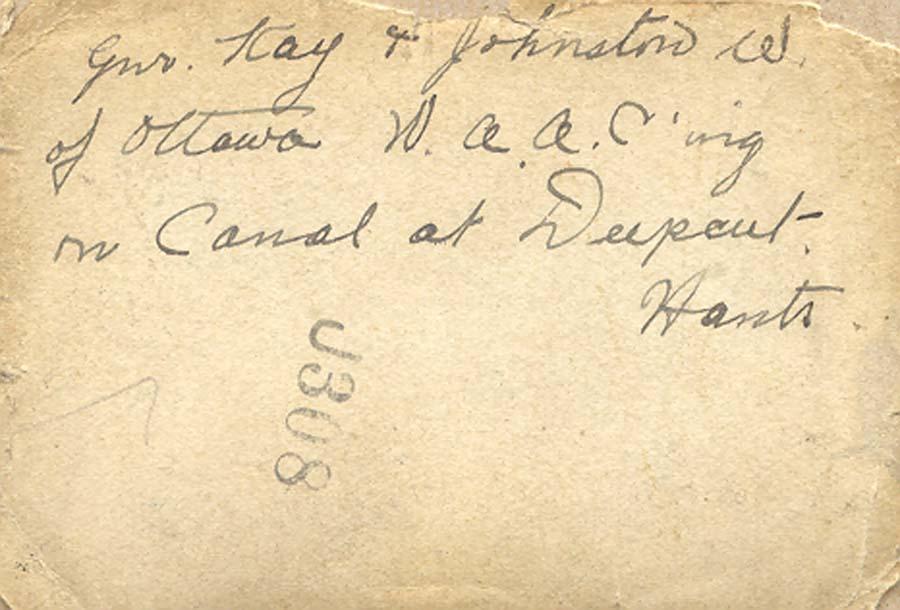 Gnr. Hay & Johnston W.
of Ottawa W. A. A. C'ing
on Canal at Deepcut.
Hants
J308